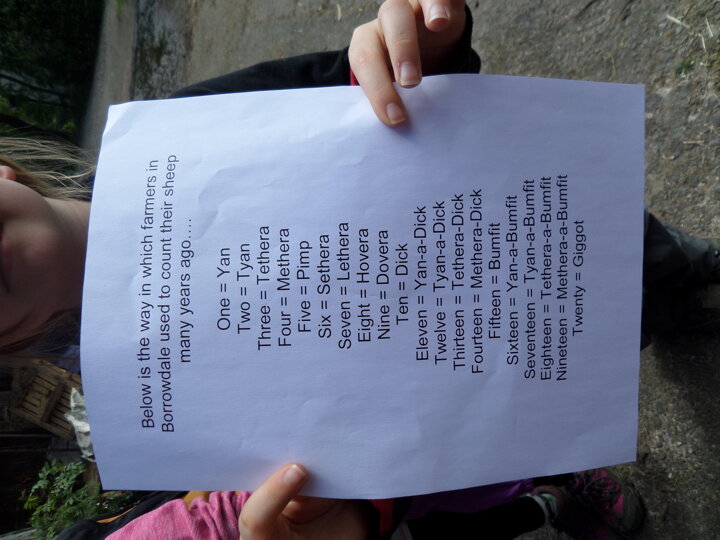 Below is the way in which farmers in
Borrowdale used to count their sheep
many years ago….
One = Yan
Two = Tyan
Three = Tethera
Four = Methera
Five = Pimp
Six = Sethera
Seven = Lethera
Eight = Hovera
Nine = Dovera
Ten = Dick
Eleven = Yan-a-Dick
Twelve = Tyan-a-Dick
Thirteen = Tathera-Dick
Fourteen = Methera-Dick
Fifteen = Bumfit
Sixteen = Yan-a-Bumfit
Seventeen = Tyan-a-Bumfit
Eighteen = Tethera-a-Bumfit
Nineteen = Methera-a-Bumfit
Twenty = Giggot